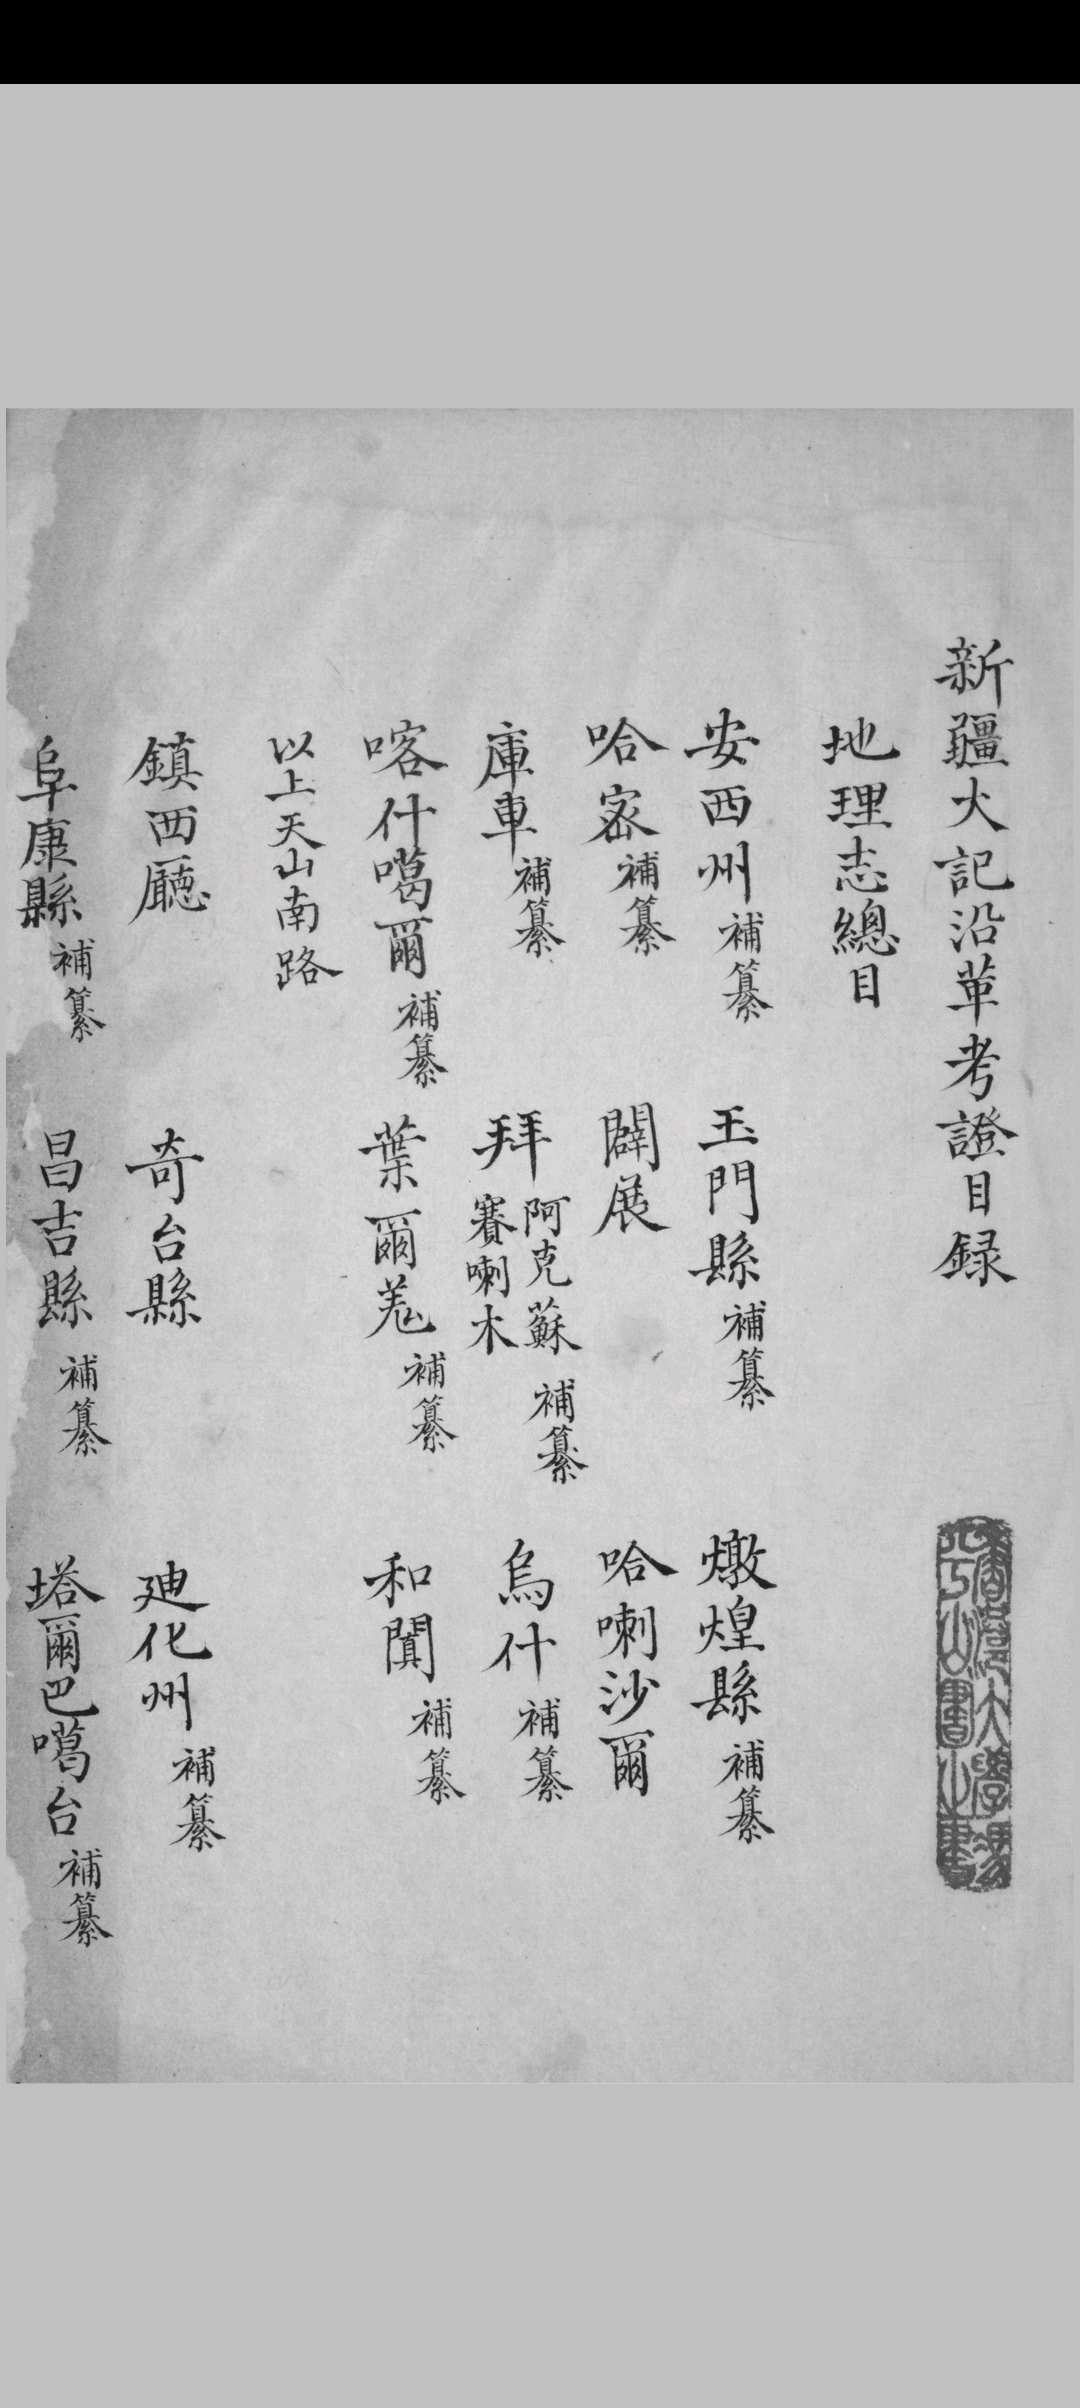 新疆大記沿革考證目録
地理志總目
安西州補纂　玉門縣補纂　燉煌縣補纂
哈宻補纂　闢展　哈喇沙爾
庫車補纂　拜阿克蘇賽喇木補纂　烏什補纂
喀什噶爾補纂　葉爾羌補纂　和闐補纂
以上天山南路
鎮西廳　奇台縣　廸化州補纂
阜康縣補纂　昌吉縣補纂　塔爾巴噶台補纂